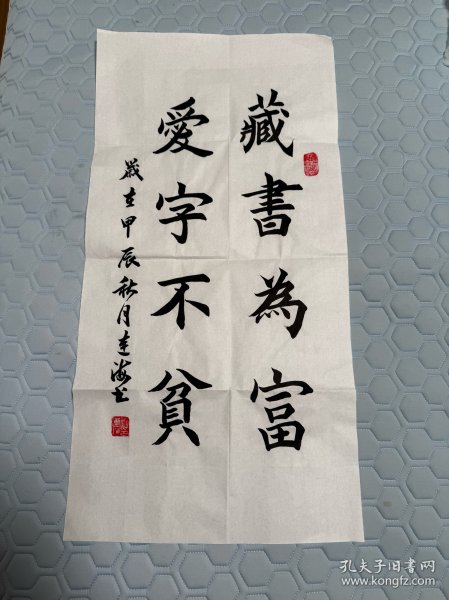 藏書為富
愛字不貧
歲在甲辰秋月建海书
孔夫子旧书网
www.kongfz.com